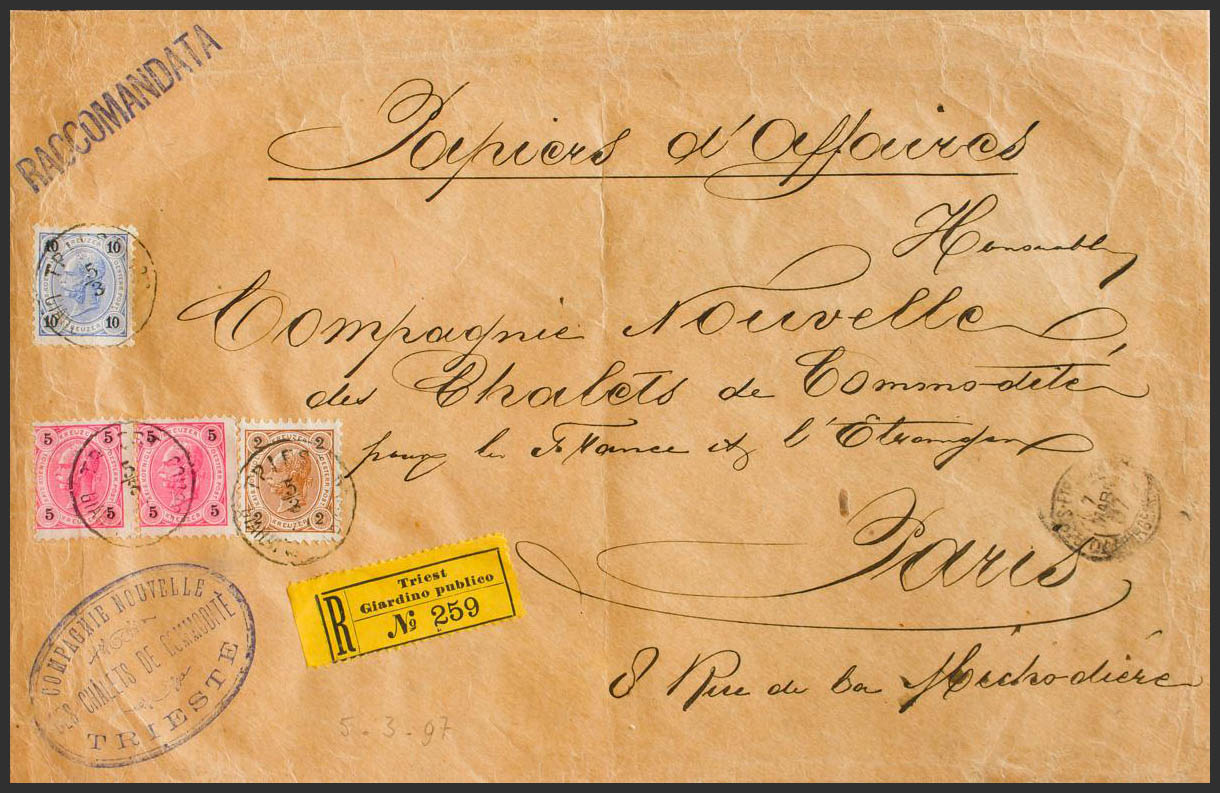 RACCOMANDATA
Papiers d'Affaires
Honorable
Compagnie Nouvelle
des Chalets de Commodité
pour la France et l'Etranger
Paris
8 Rue de la Michodière
10 KREUZER 10
10 KREUZER 10
5 KREUZER 5
5 5
5 KREUZER 5
5 5
2 KREUZER 2
2 2
TRIEST
5
3
R
Triest
Giardino publico
№ 259
COMPAGNIE NOUVELLE
DES CHALETS DE COMMODITÉ
TRIESTE
7
MARS
97
5.3.97